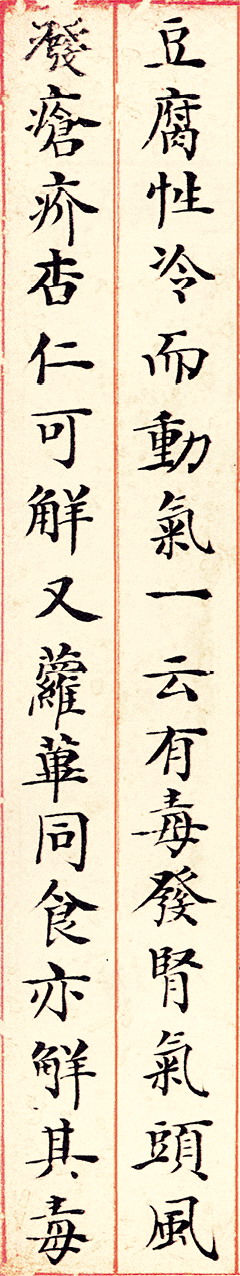 豆腐性冷而動氣一云有毒發腎氣頭風
發瘡疥杏仁可解又蘿蔔同食亦解其毒